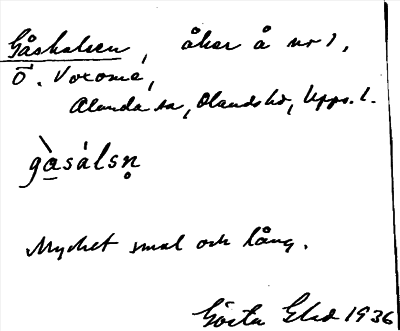 Gåshalsen, åker å nr 1,
Ö. Voxome,
Alunda sn, Olands hd, Upps. l.
gå̀sálsn̥
Mycket smal och lång.
Gösta Ehd 1936